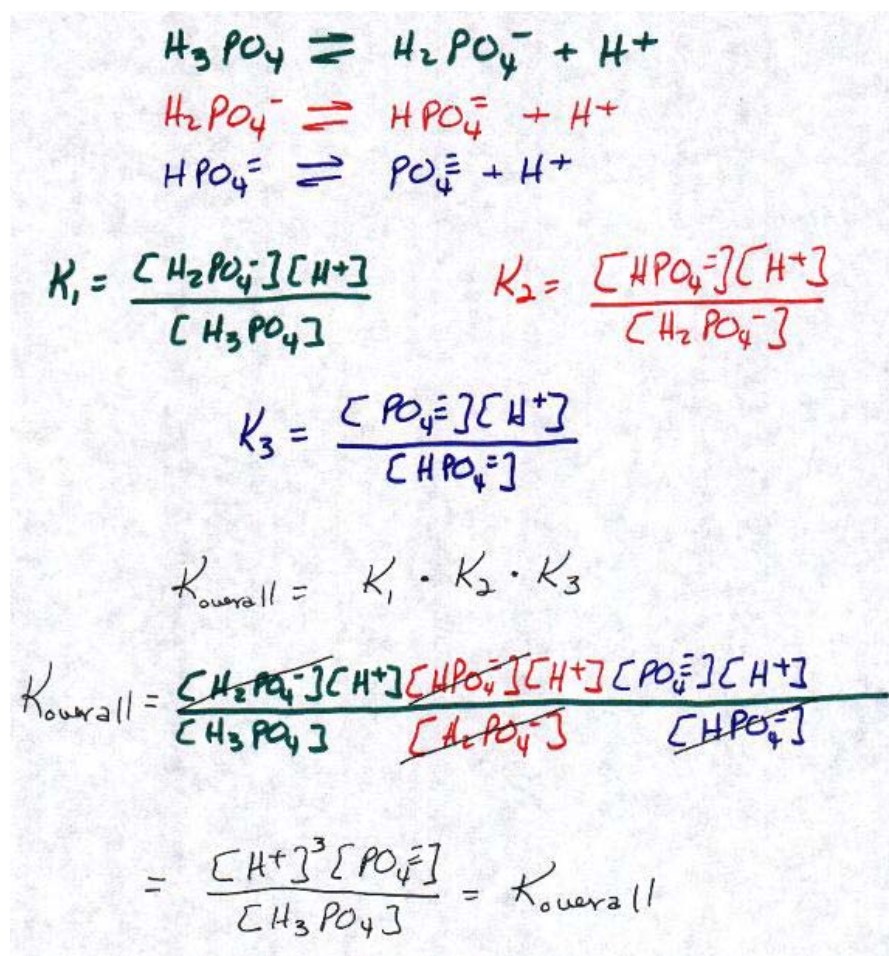 H₃PO₄ ⇌ H₂PO₄⁻ + H⁺
H₂PO₄⁻ ⇌ HPO₄⁼ + H⁺
HPO₄⁼ ⇌ PO₄≡ + H⁺
K₁ = [H₂PO₄⁻][H⁺] / [H₃PO₄]
K₂ = [HPO₄⁼][H⁺] / [H₂PO₄⁻]
K₃ = [PO₄≡][H⁺] / [HPO₄⁼]
Koverall = K₁ · K₂ · K₃
Koverall = [H₂PO₄⁻][H⁺][HPO₄⁼][H⁺][PO₄≡][H⁺] / [H₃PO₄] [H₂PO₄⁻] [HPO₄⁼]
= [H⁺]³[PO₄≡] / [H₃PO₄] = Koverall